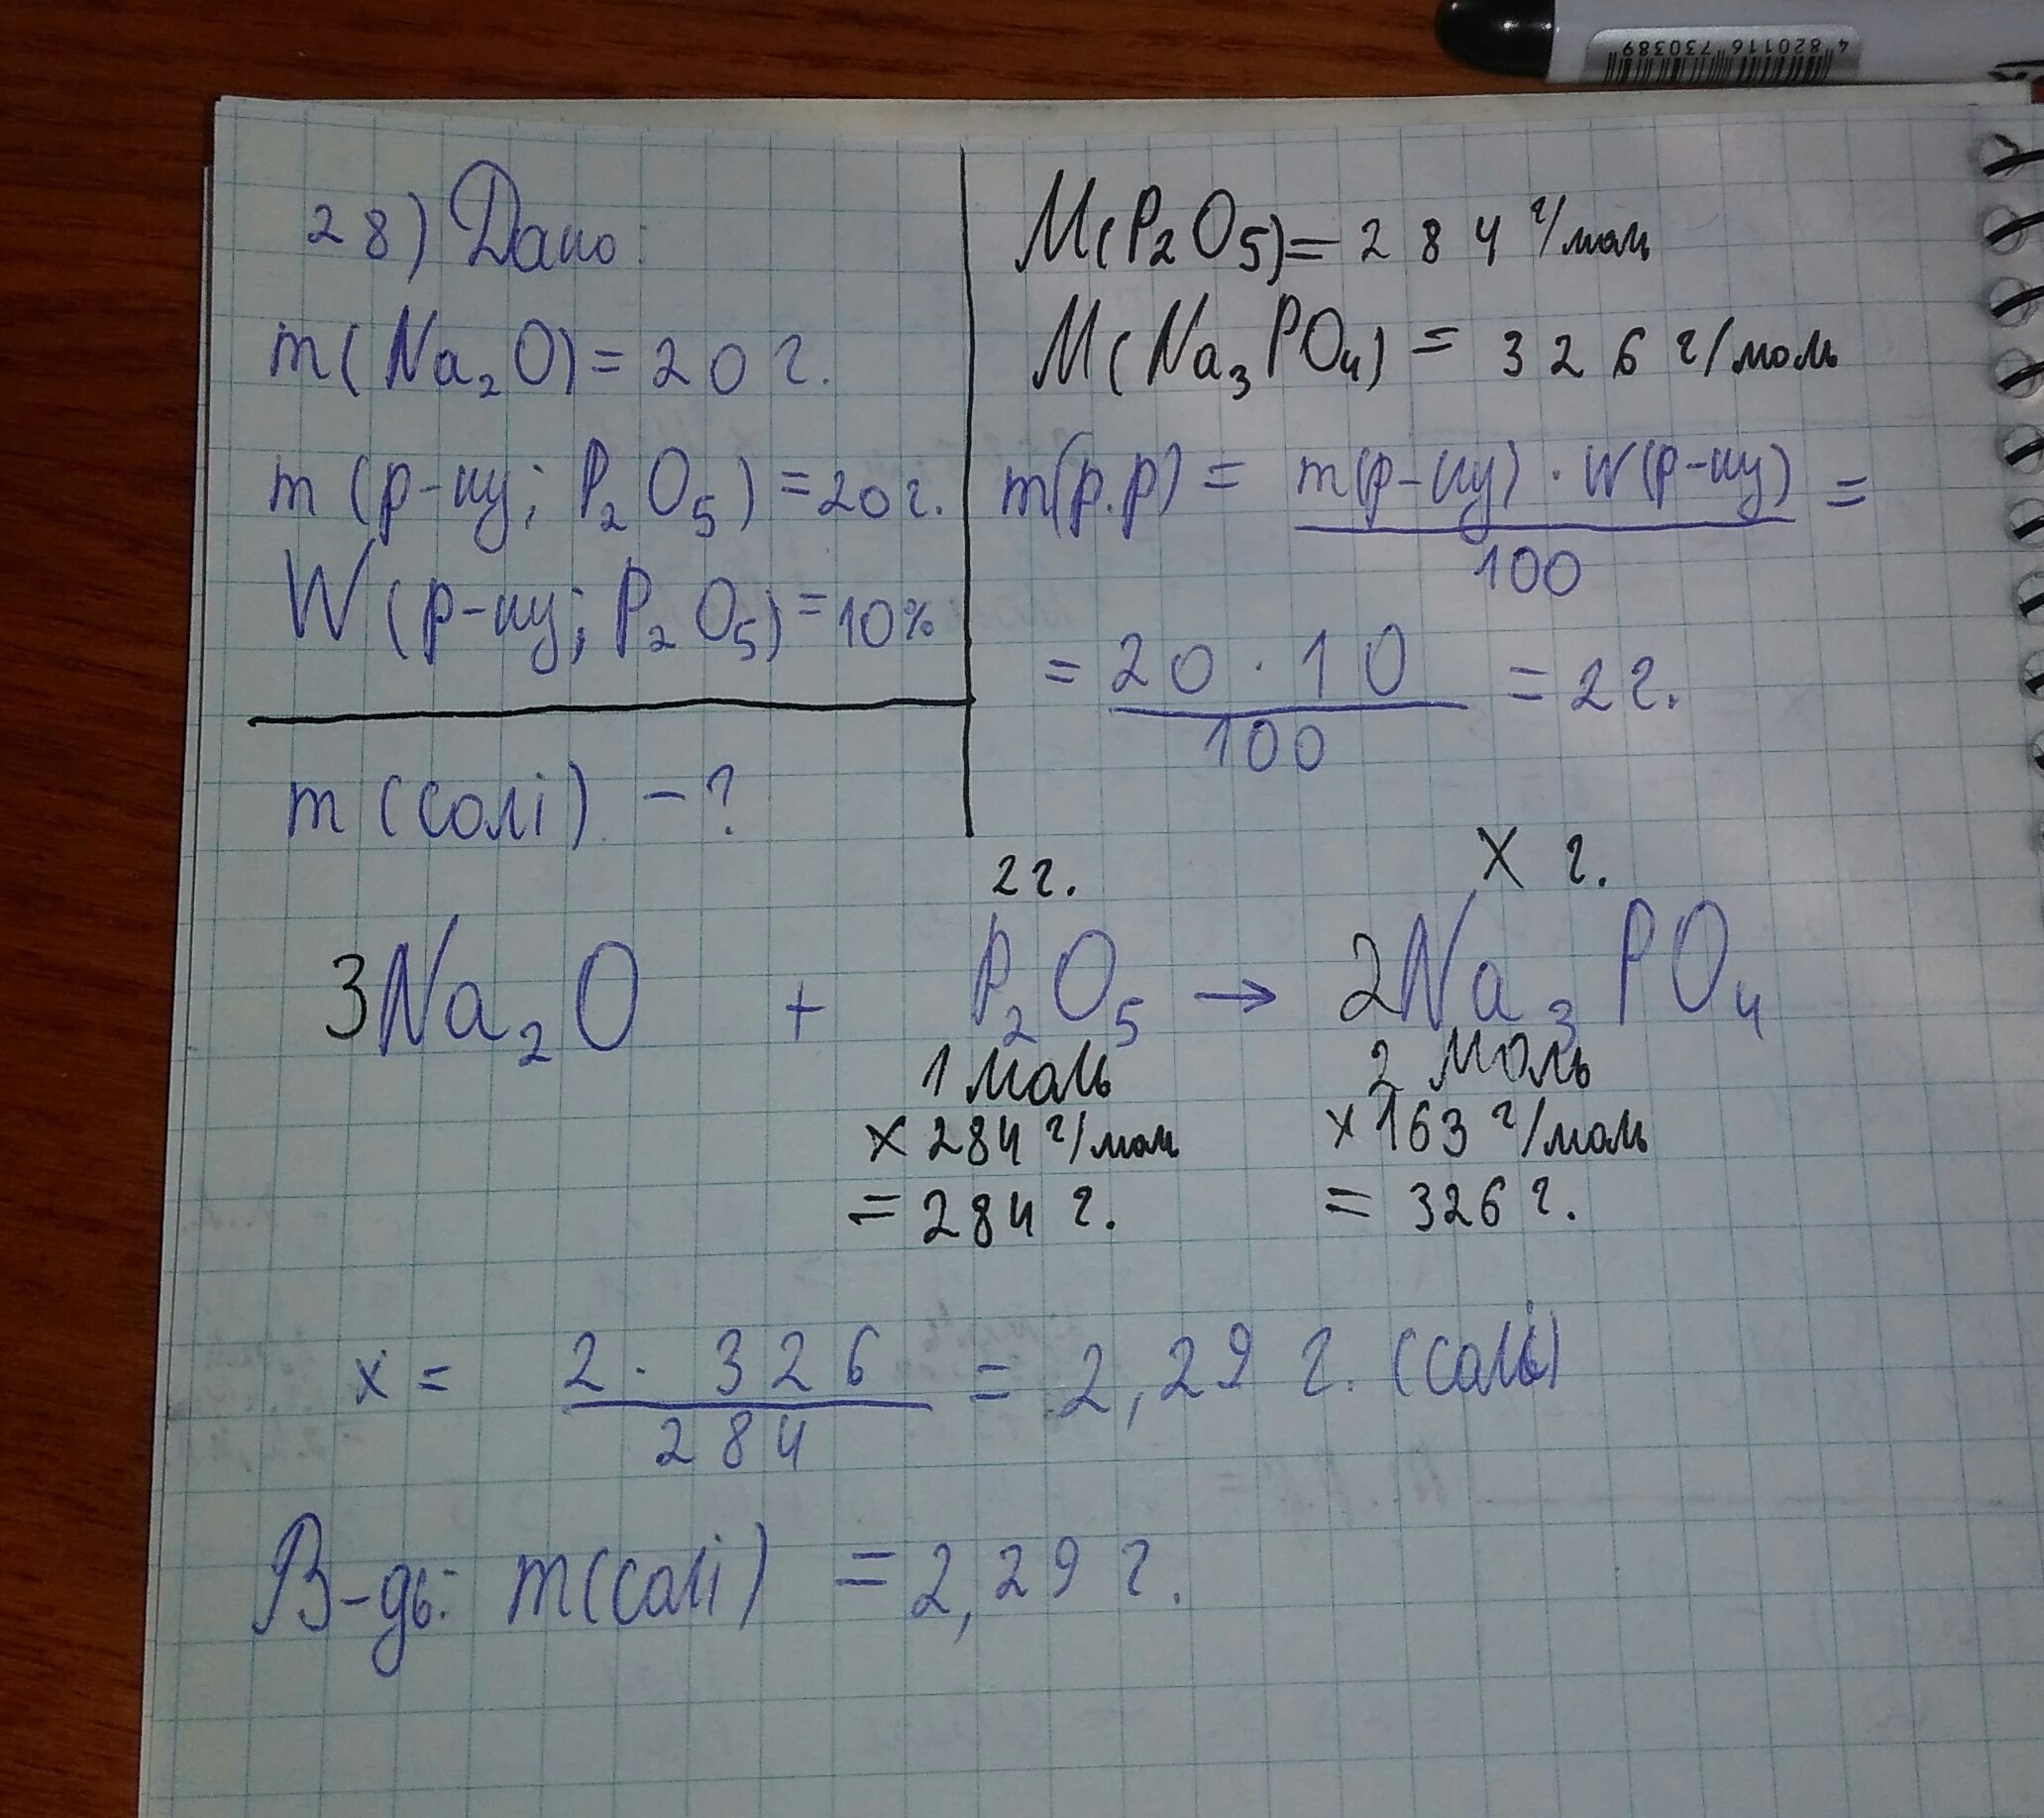 4 820116 730389
28) Дано:
m(Na₂O) = 20 г.
m(р-ну; P₂O₅) = 20 г.
W(р-ну; P₂O₅) = 10%
m(солі) - ?
M(P₂O₅) = 284 г/моль
M(Na₃PO₄) = 326 г/моль
m(р.р) = m(р-ну) · W(р-ну) =
100
= 20 · 10 = 2 г.
100
2 г. X г.
3Na₂O + P₂O₅ → 2Na₃PO₄
1 моль 2 моль
x 284 г/моль x 163 г/моль
= 284 г. = 326 г.
x = 2 · 326 = 2,29 г. (солі)
284
В-дь: m(солі) = 2,29 г.